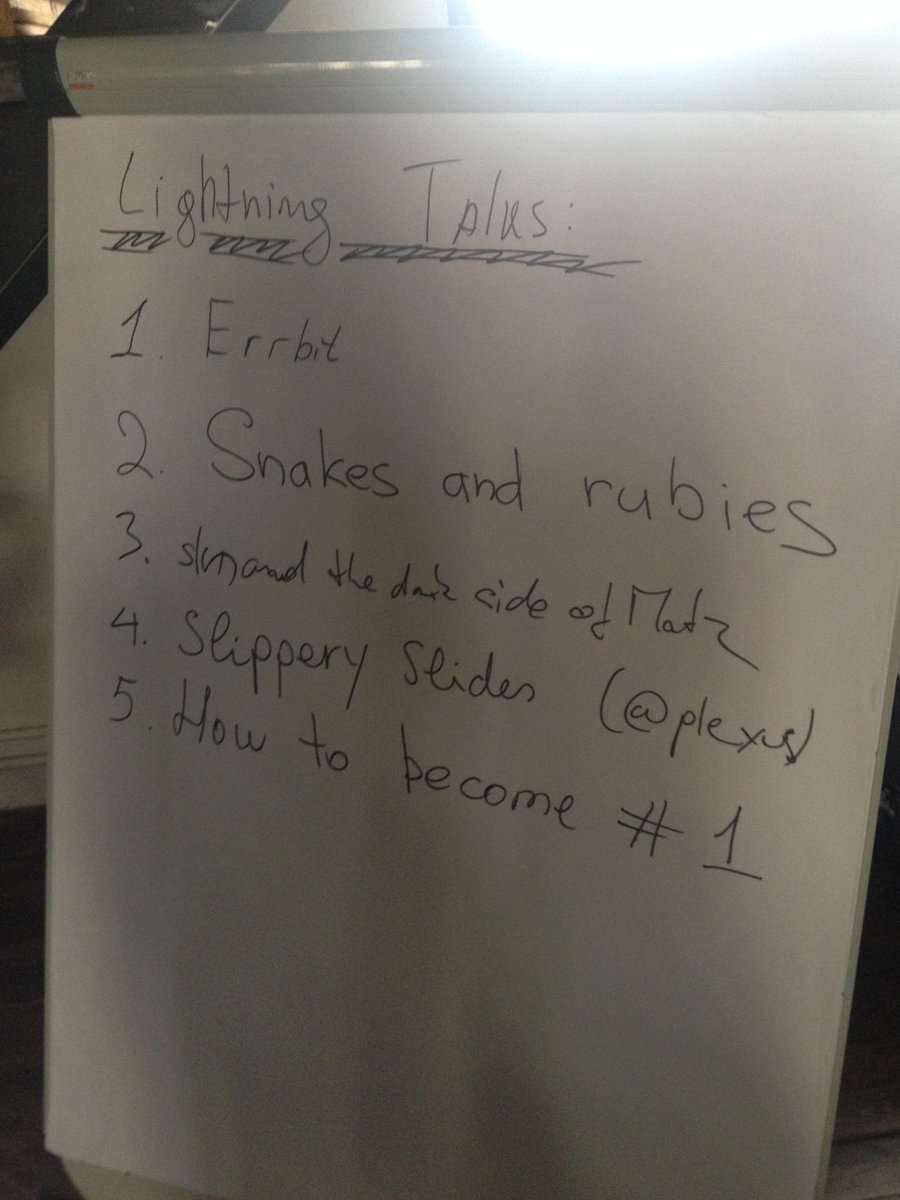 Lightning Talks:
1. Errbit
2. Snakes and rubies
3. and the dark side of Matz
4. Slippery Slides (@plexus)
5. How to become # 1